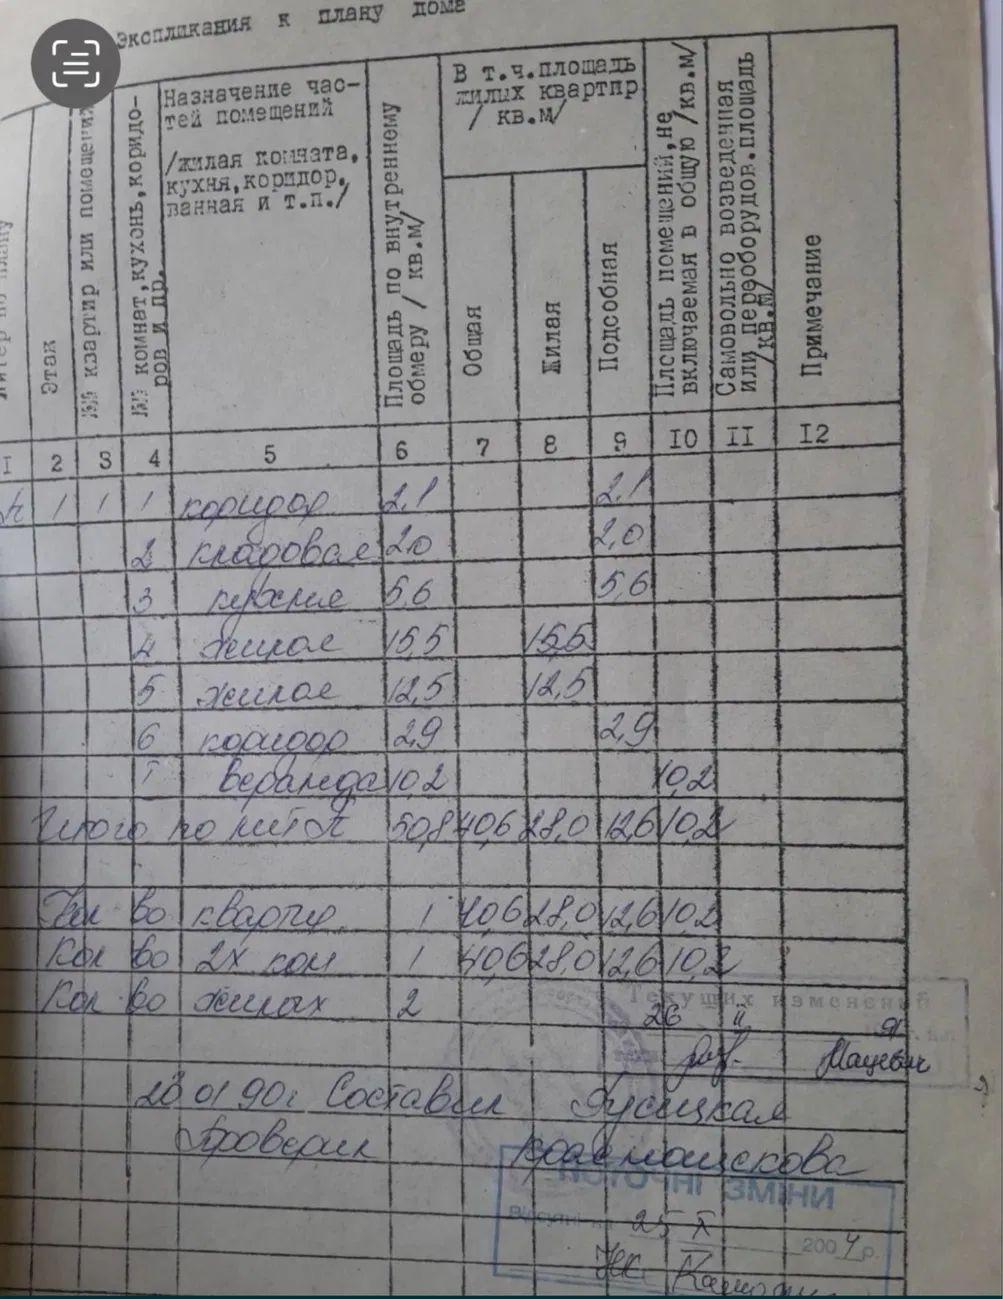 Экспликация к плану дома
Литер по плану
Этаж
№№ квартир или помещений
№№ комнат, кухонь, коридо-
ров и пр.
Назначение час-
тей помещений
/жилая комната,
кухня, коридор,
ванная и т.п./
Площадь по внутреннему
обмеру / кв.м/
В т.ч. площадь
жилых квартир
/ кв.м/
Общая
Жилая
Подсобная
Площадь помещений, не
включаемая в общую /кв.м/
Самовольно возведенная
или переоборудов. площадь
/кв.м/
Примечание
I 2 3 4 5 6 7 8 9 IO II I2
А 1 1 1 коридор 2,1 2,1
2 кладовая 2,0 2,0
3 кухня 5,6 5,6
4 жилая 15,5 15,5
5 жилая 12,5 12,5
6 коридор 2,9 2,9
I веранда 10,2 10,2
Итого по лит А 50,8 40,6 28,0 12,6 10,2
Кол во квартир 1 40,6 28,0 12,6 10,2
Кол во 2х ком 1 40,6 28,0 12,6 10,2
Кол во жилых 2
Текущих изменений
26 II 91
Мацевич
23 01 90г Составил Гусицкая
Проверил Краснощекова
ПОТОЧНІ ЗМІНИ
Відсутні на 25 X 2004 р.